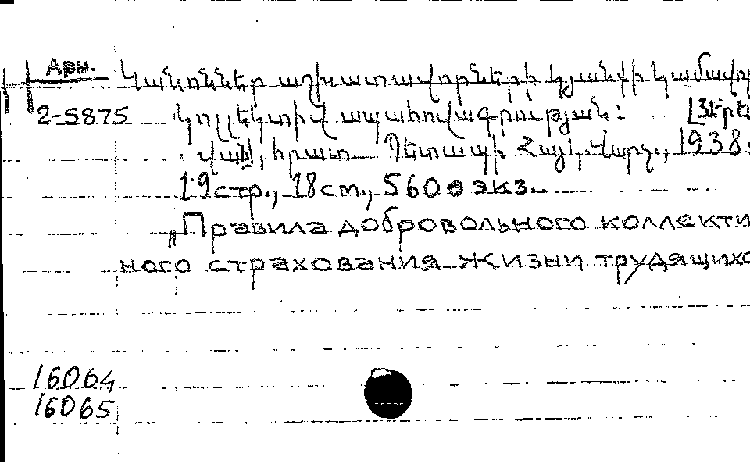 Арм.
Կանոններ աշխատավորների կյանքի կամավոր
2-5875 կոլլեկտիվ ապահովագրության: [Յերե
վան], հրատ. Պետապի Հայ, Վարչ., 1938.
19 стр., 18 см., 5600 экз.
„Правила добровольного коллекти
ного страхования жизни трудящихс
16064
16065